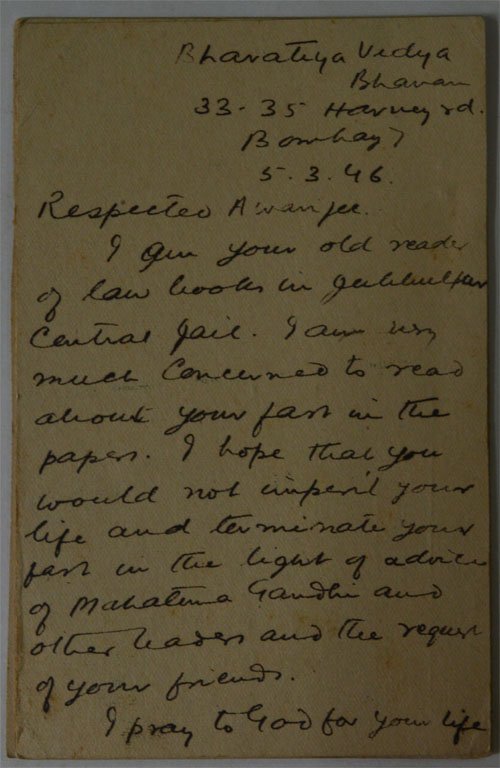 Bharatiya Vidya
Bhavan
33-35 Harvey rd.
Bombay 7
5.3.46.
Respected Awarijee.
I am your old reader
of law books in Jubbulpur
Central Jail. I am very
much Concerned to read
about your fast in the
papers. I hope that you
would not imperil your
life and terminate your
fast in the light of advice
of Mahatma Gandhi and
other leaders and the request
of your friends.
I pray to God for your life